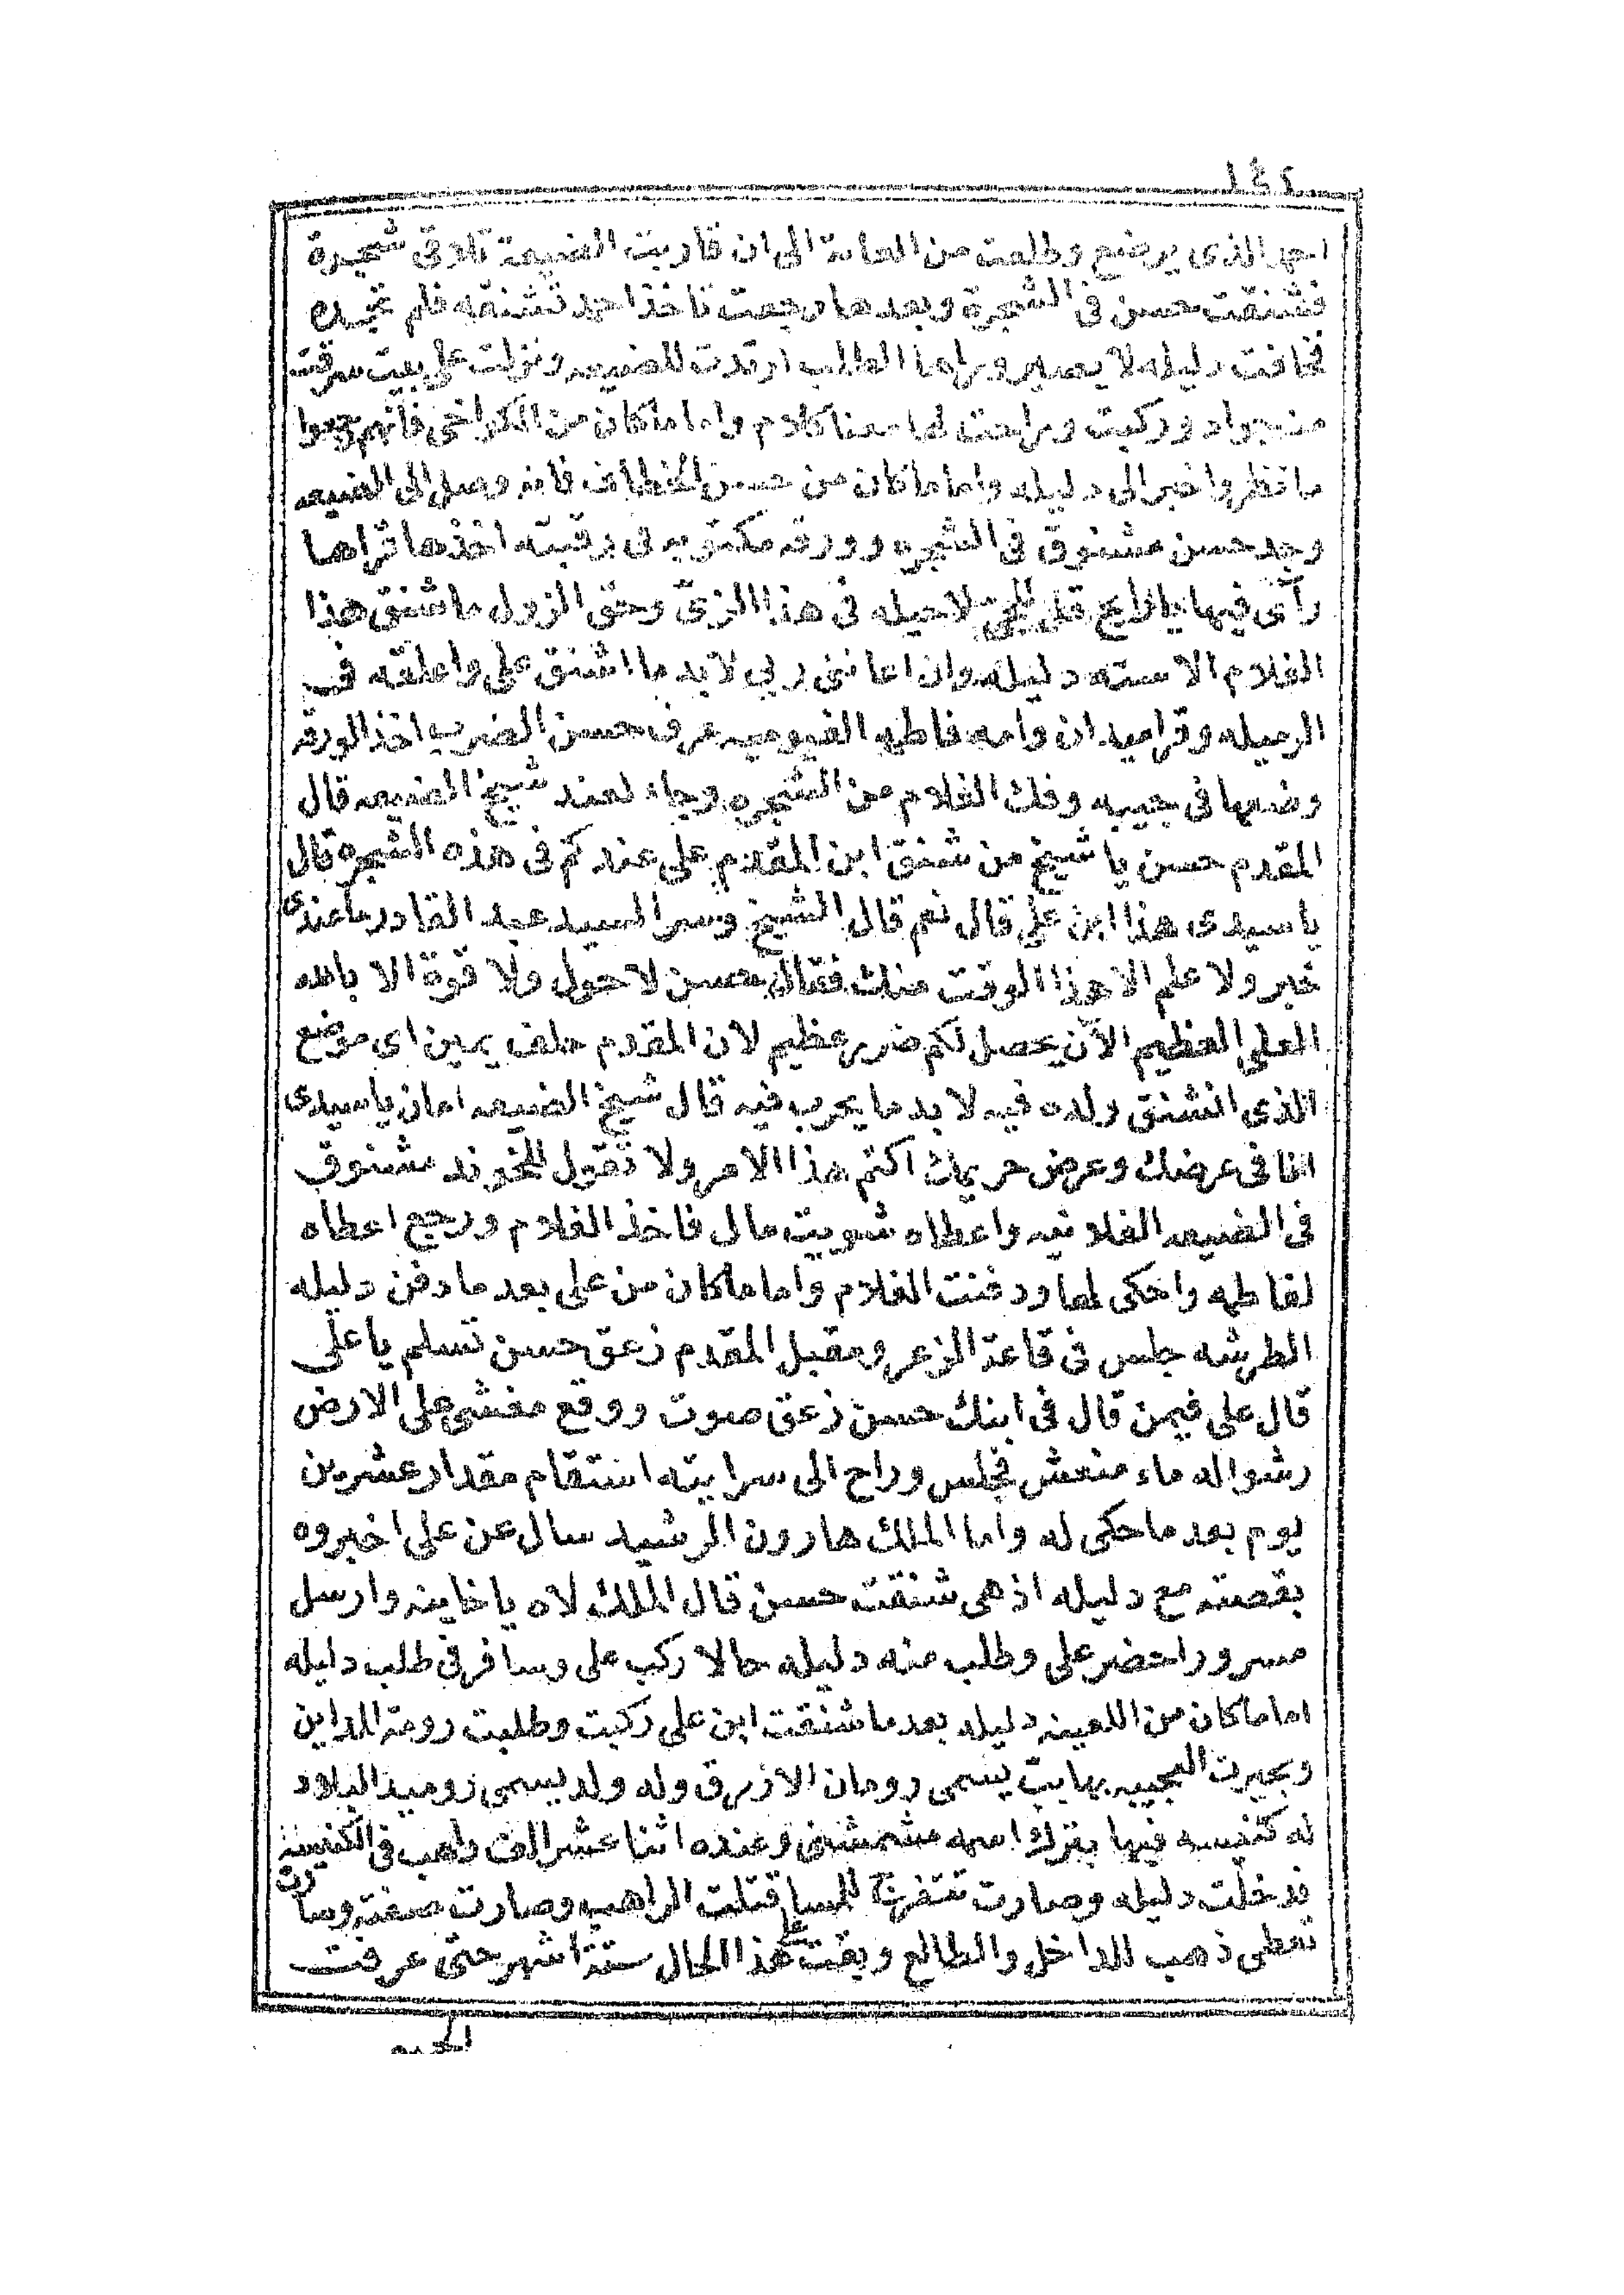 احمد الذى يرضع وطلعت من القاعة الى ان قاربت الضيعة تلاقى شجرة
فشنقت حسن فى الشجرة وبعدها رجعت تاخذ احمد تشنقه فلم تجده
فخافت دليله لا يصير وراها الطلب ارتدت للضيعه ونزلت على بيت سرقت
منه جواد وركبت وراحت لها معنا كلام واما ماكان من الكراخى فانهم رجعوا
ما نظروا خبر الى دليله واما ماكان من حسن الخطاف فانه وصل الى الضيعه
وجد حسن مشنوق فى الشجره وورقه مكتوبه فى رقبته اخذها قراها
رآى فيها يا رايح قل للجى لا حيله فى هذا الزىّ وحق الزول ما شنق هذا
الغلام الا سته دليله وان اعاننى ربى لابد ما اشنق على واعلقه فى
الرميله وقراميدان وامه فاطمه الفيوميه عرف حسن الضرب اخذ الورقه
وضعها فى جيبه وفك الغلام من الشجره وجاء لعند شيخ الضيعه قال
المقدم حسن يا شيخ من شنق ابن المقدم على عندكم فى هذه الشجره قال
يا سيدى هذا ابن على قال نعم قال الشيخ وسر السيد عبد القادر ما عندى
خبر ولا علم الا هذا الوقت منك فقال حسن لا حول ولا قوة الا بالله
العلى العظيم الآن يحصل لكم ضرر عظيم لان المقدم حلف يمين اى موضع
الذى انشنق ولده فيه لابد ما يخرب فيه قال شيخ الضيعه امان يا سيدى
انا فى عرضك وعرض حريمك اكتم هذا الامر ولا تقول للخوند مشنوق
فى الضيعه الفلانيه واعطاه شوية مال فاخذ الغلام ورجع اعطاه
لفاطمه واحكى لها ودفنت الغلام واما ماكان من على بعد ما دفن دليله
الطرشه جلس فى قاعة الزعر ومقبل المقدم زعق حسن تسلم يا على
قال على فيمن قال فى ابنك حسن زعق صوت ووقع مغشى على الارض
رشوا له ماء منعش فجلس وراح الى سرايته استقام مقدار عشرين
يوم بعد ما حكى له واما الملك هارون الرشيد سال عن على اخبروه
بقصته مع دليله اذ هى شنقت حسن قال الملك لاه يا خاينه وارسل
مسرور احضر على وطلب منه دليله حالا ركب على وسافر فى طلب دليله
اما ماكان من اللعينه دليله بعد ما شنقت ابن على ركبت وطلعت رومة المداين
وبحيرت العجيبه بها بب يسمى رومان الازرق وله ولد يسمى زوميد البلاد
له كنيسه فيها بترك اسمه مشمشين وعنده اثنا عشر الف راهب فى الكنيسة
فدخلت دليله وصارت تتفرج للمسا قتلت الراهب وصارت صفته وصارت
تعطى ذهب للداخل والطالع وبقت على هذا الحال ستة اشهر حتى عرفت